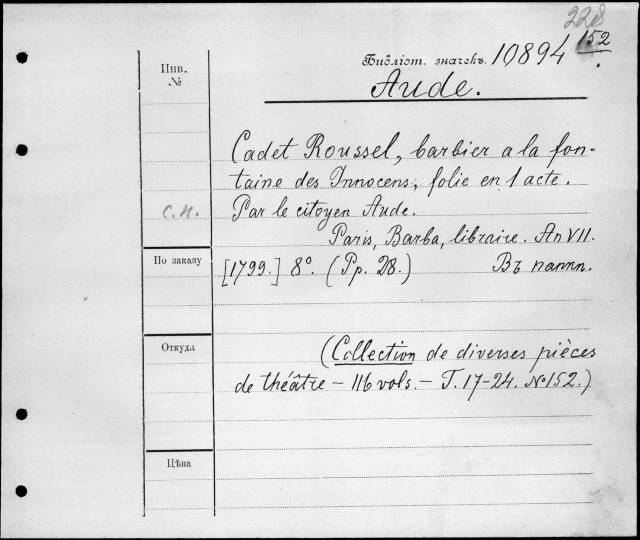 228
Библіот. значекъ. 10894 152.
Инв.
№
Aude.
Cadet Roussel, barbier a la fon-
taine des Innocens; folie en 1 acte.
С.П. Par le citoyen Aude.
Paris, Barba, libraire. An VII.
По заказу
[1799.] 8°. (Pp. 28.) Въ папкѣ.
Откуда
(Collection de diverses pièces
de théâtre – 116 vols. – T. 17-24. № 152.)
Цѣна